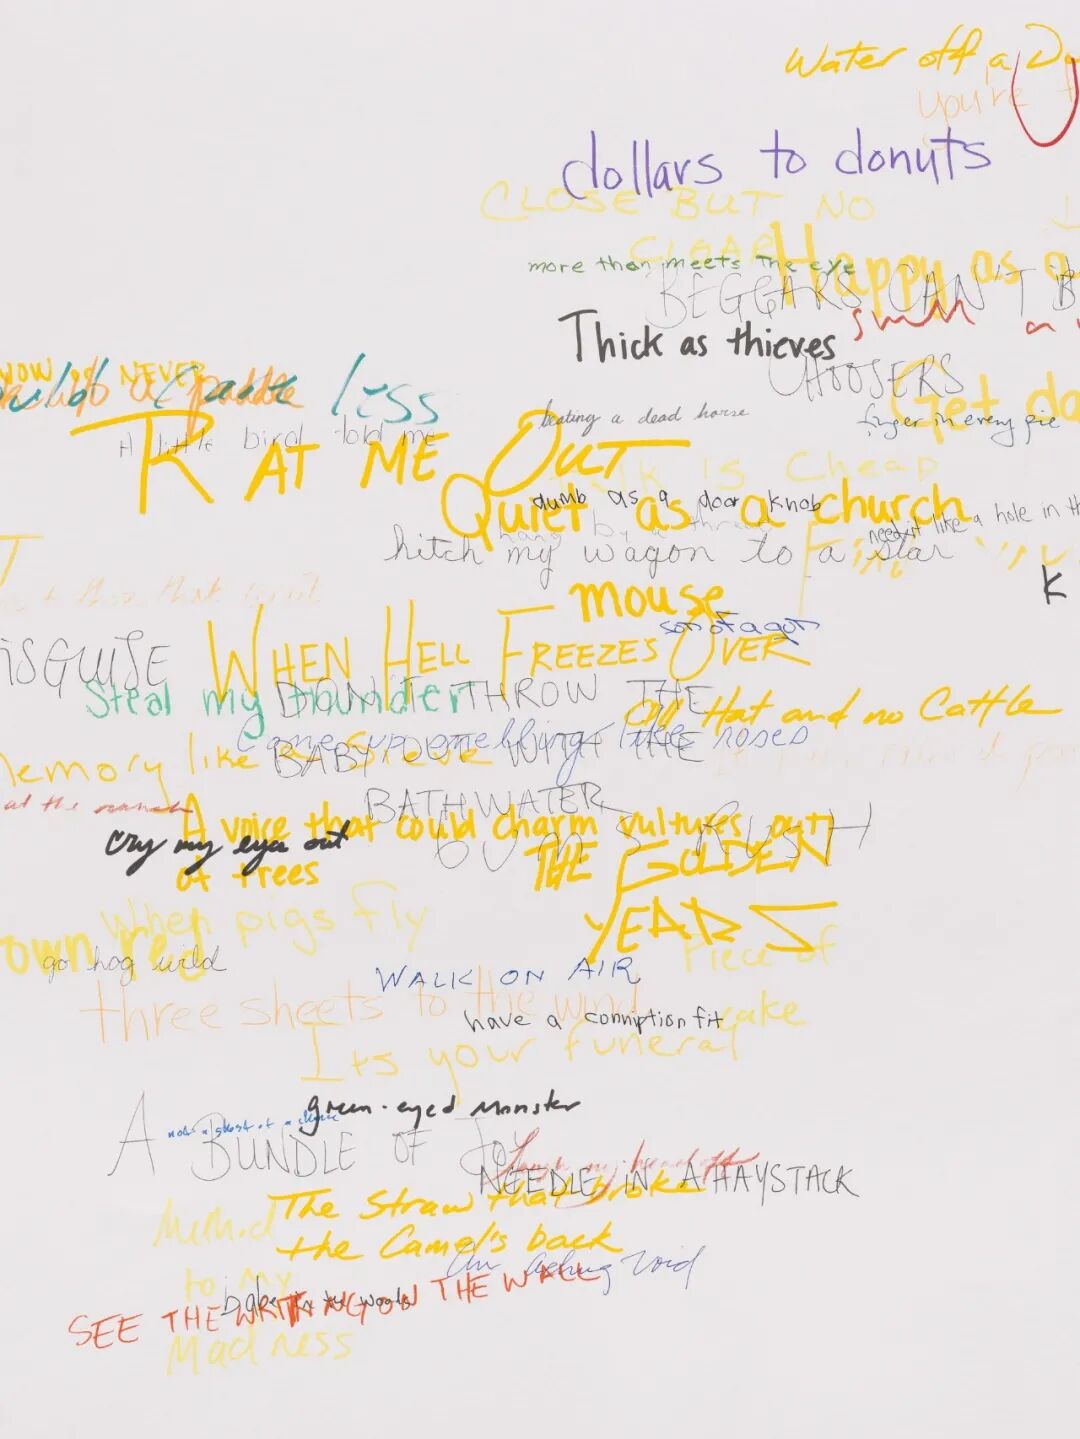 Water off a
you're
dollars to donuts
CLOSE BUT NO
CIGAR
Happy as a
more than meets the eye
BEGGARS CAN'T B
CHOOSERS
Thick as thieves
small
NOW or NEVER
less
Get do
beating a dead horse
finger in every pie
A little bird told me
RAT ME OUT
is Cheap
Quiet as a church
mouse
dumb as a door knob
hang by a thread
need it like a hole in th
hitch my wagon to a star
K
ISGUISE
WHEN HELL FREEZES OVER
son of a gun
Steal my thunder
DON'T THROW THE
BABY OUT WITH THE
BATHWATER
All Hat and no Cattle
Come up smelling like roses
memory like a
at the
A voice that could charm vultures out
of trees
cry my eyes out
BUM'S RUSH
THE GOLDEN
YEARS
When pigs fly
own
go hog wild
WALK ON AIR
Piece of
cake
three sheets to the wind
have a conniption fit
Its your funeral
green-eyed monster
not a ghost of a chance
A BUNDLE OF Joy
laugh my head off
NEEDLE IN A HAYSTACK
The Straw that broke
the Camel's back
An aching void
to my
Madness
SEE THE WRITING ON THE WALL